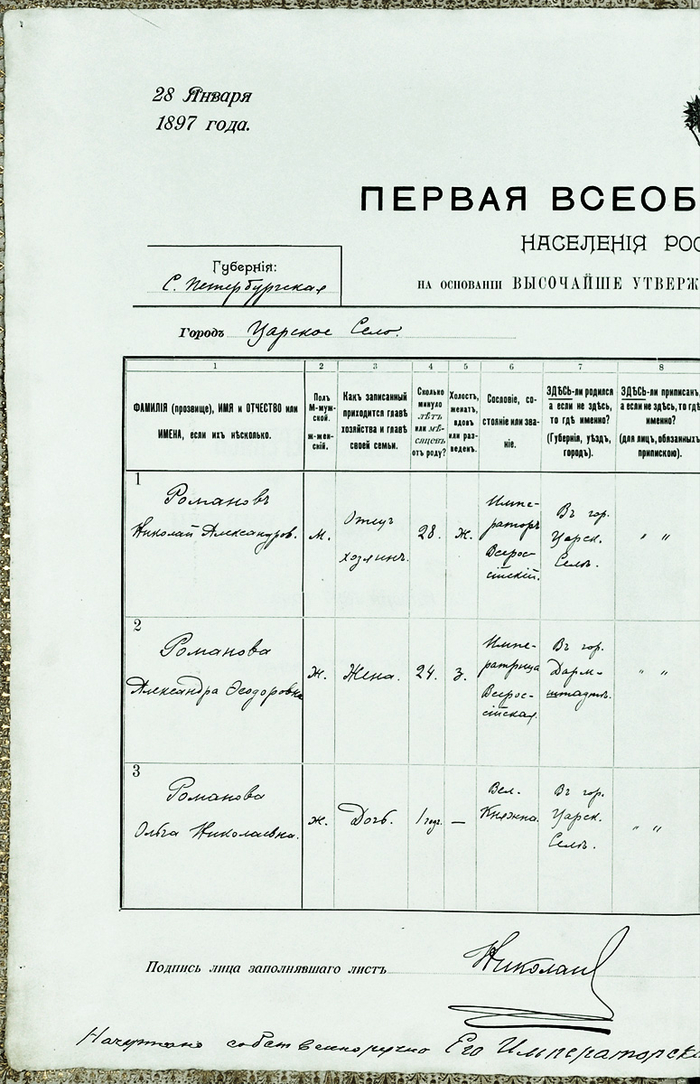 28 Января
1897 года.
ПЕРВАЯ ВСЕОБ
НАСЕЛЕНІЯ РОС
Губернія:
С. Петербургская
НА ОСНОВАНІИ ВЫСОЧАЙШЕ УТВЕРЖ
Городъ Царское Село.
1 2 3 4 5 6 7 8
ФАМИЛІЯ (прозвище), ИМЯ и ОТЧЕСТВО или
ИМЕНА, если ихъ нѣсколько.
Полъ
М-муж-
ской.
ж-жен-
скій.
Какъ записанный
приходится главѣ
хозяйства и главѣ
своей семьи.
Сколько
минуло
лѣтъ
или мѣ-
сяцевъ
отъ роду?
Холостъ,
женатъ,
вдовъ
или раз-
веденъ.
Сословіе, со-
стояніе или зва-
ніе.
ЗДѢСЬ-ли родился
а если не здѣсь,
то гдѣ именно?
(Губернія, уѣздъ,
городъ).
ЗДѢСЬ-ли приписан,
а если не здѣсь, то гдѣ
именно?
(для лицъ, обязанных
припискою).
1
Романовъ
Николай Александров.
М.
Отец
хозяинъ.
28.
Ж.
Импе-
раторъ
Всерос-
сійскій.
Въ гор.
Царск.
Селѣ.
" "
2
Романова
Александра Ѳеодоровна
Ж.
Жена.
24.
З.
Импе-
ратрица
Всерос-
сійская.
Въ гор.
Дарм-
штадтѣ.
" "
3
Романова
Ольга Николаевна.
Ж.
Дочь.
1 год.
—
Вел.
Княжна.
Въ гор.
Царск.
Селѣ.
" "
Подпись лица заполнявшаго листъ Николай
Начертано собственноручно Его Императорск